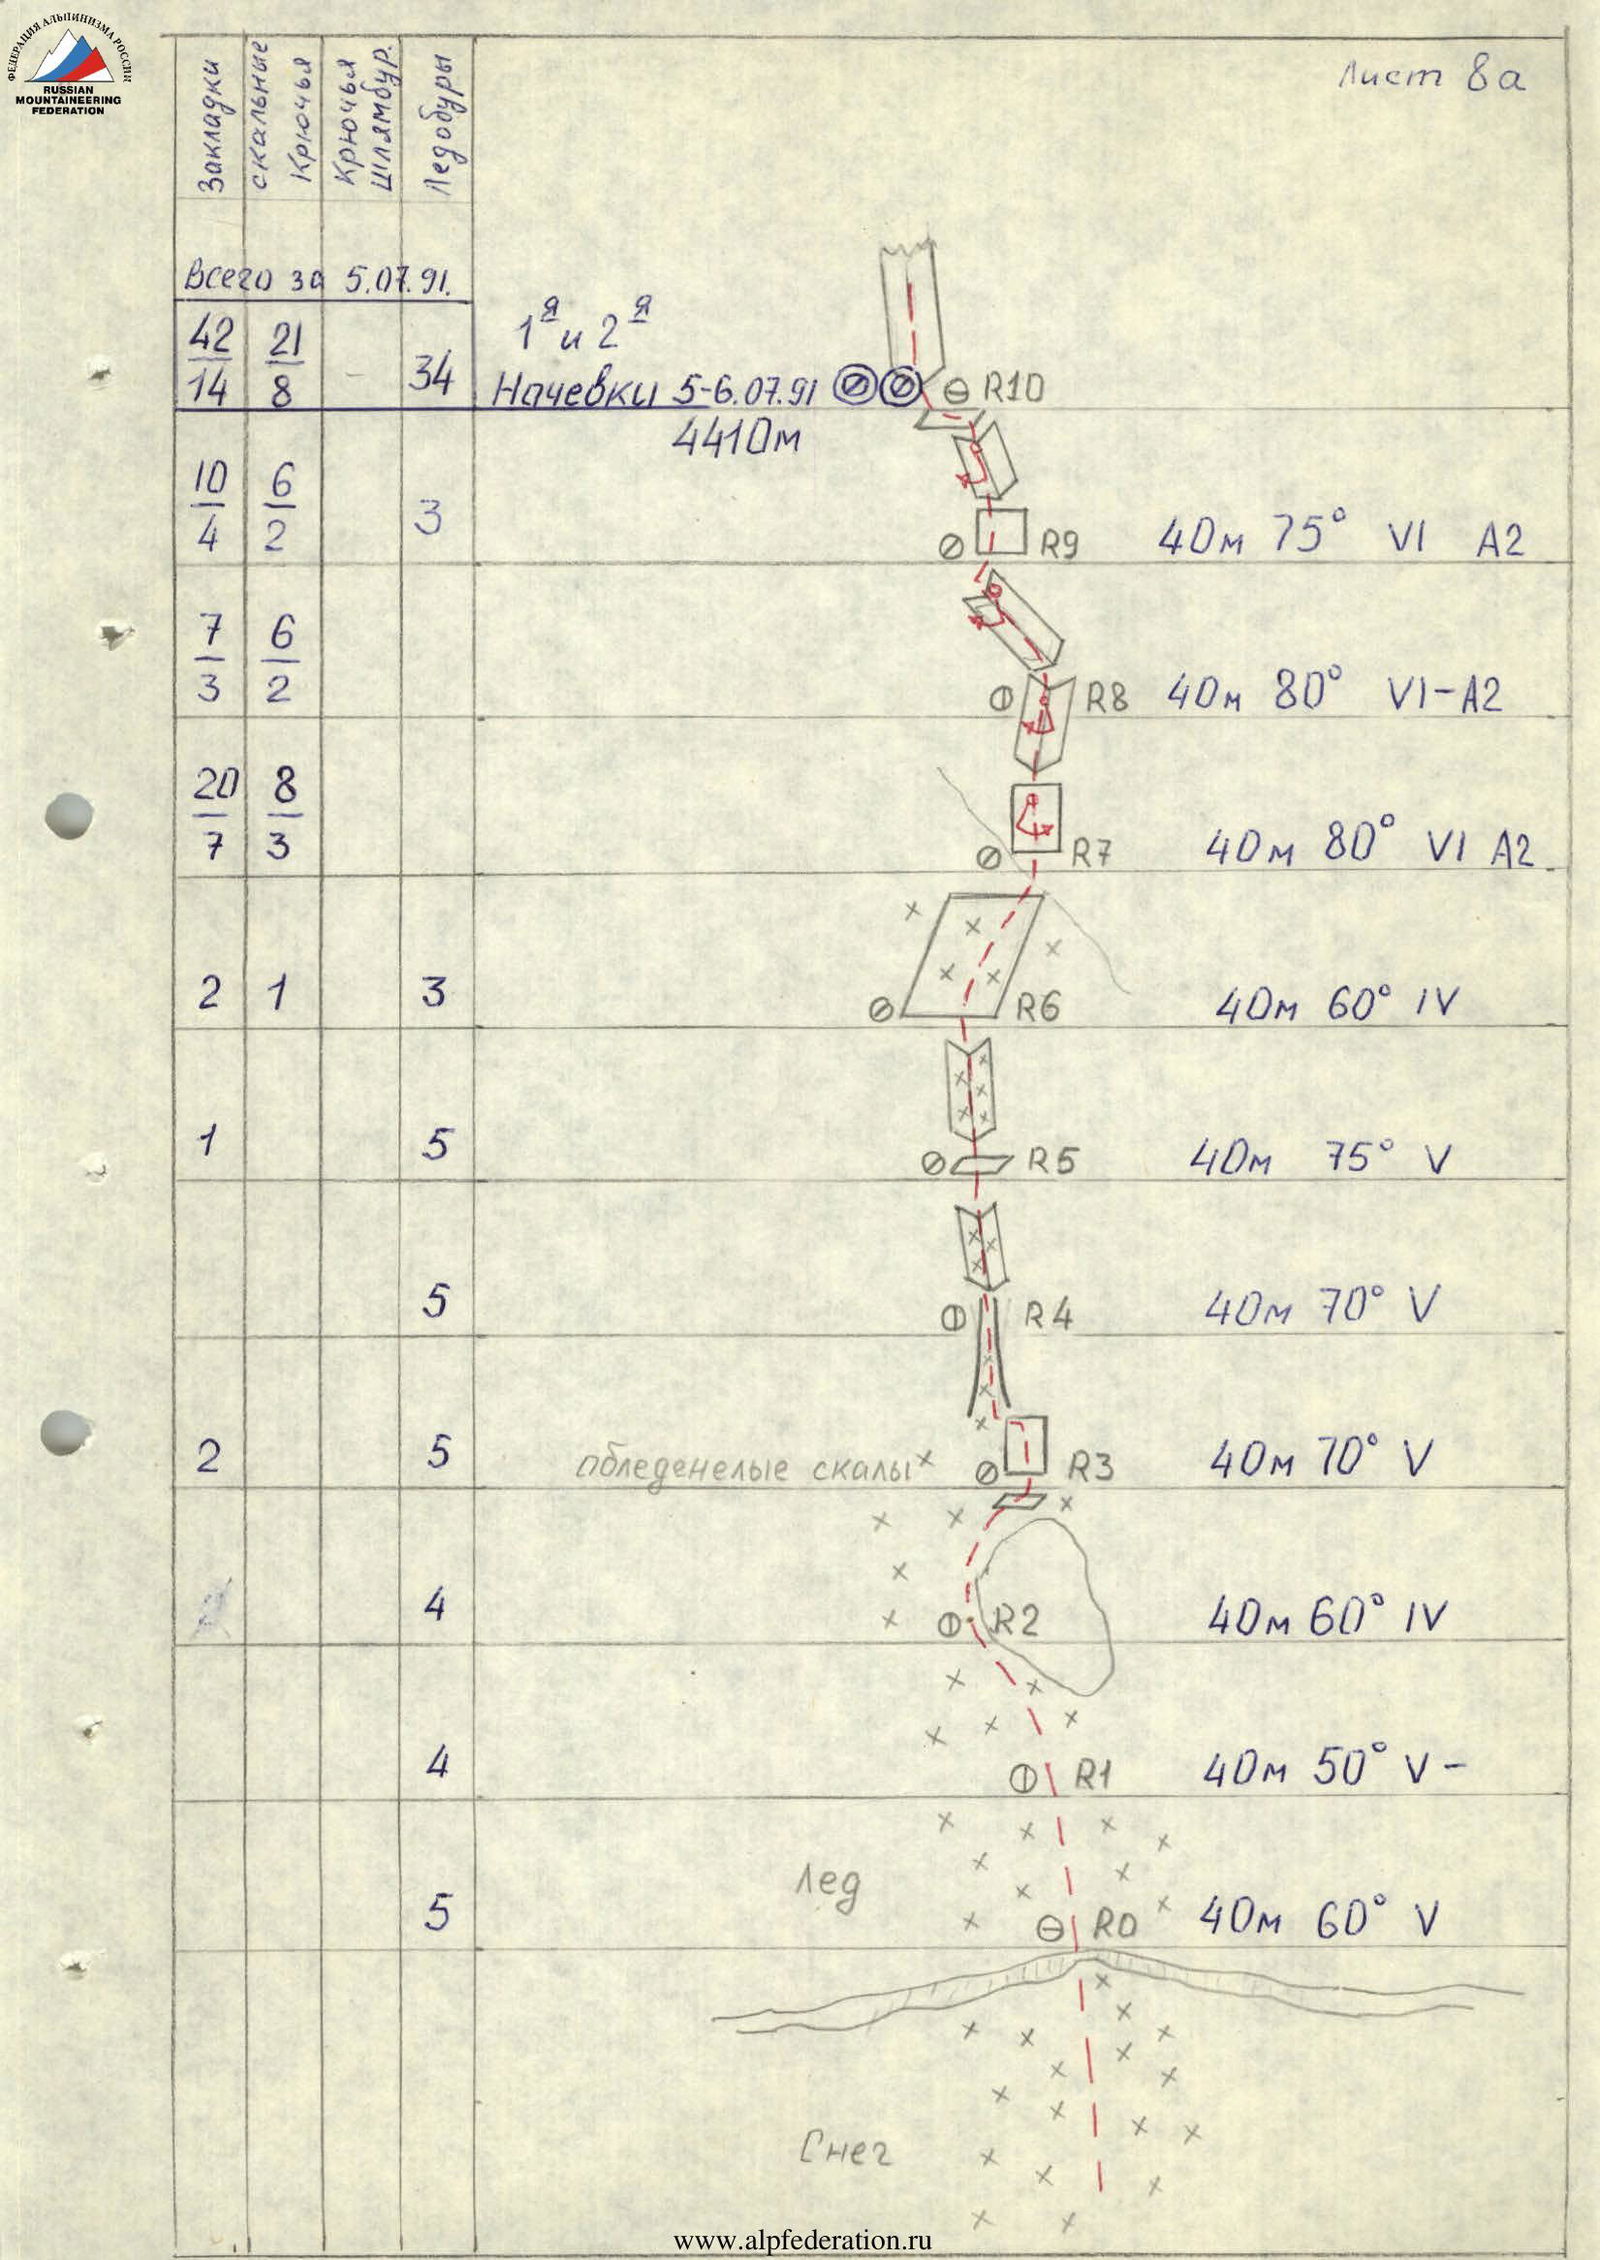 ФЕДЕРАЦИЯ АЛЬПИНИЗМА РОССИИ
RUSSIAN
MOUNTAINEERING
FEDERATION
Лист 8а
Закладки
скальные
Крючья
Крючья
Шлямбур.
Ледобуры
Всего за 5.07.91.
42/14 21/8 - 34
1я и 2я
Ночевки 5-6.07.91 R10
4410м
10/4 6/2 3 R9 40м 75° VI A2
7/3 6/2 R8 40м 80° VI-A2
20/7 8/3 R7 40м 80° VI A2
2 1 3 R6 40м 60° IV
1 5 R5 40м 75° V
5 R4 40м 70° V
2 5 обледенелые скалы R3 40м 70° V
4 R2 40м 60° IV
4 R1 40м 50° V-
Лед
5 R0 40м 60° V
Снег
www.alpfederation.ru